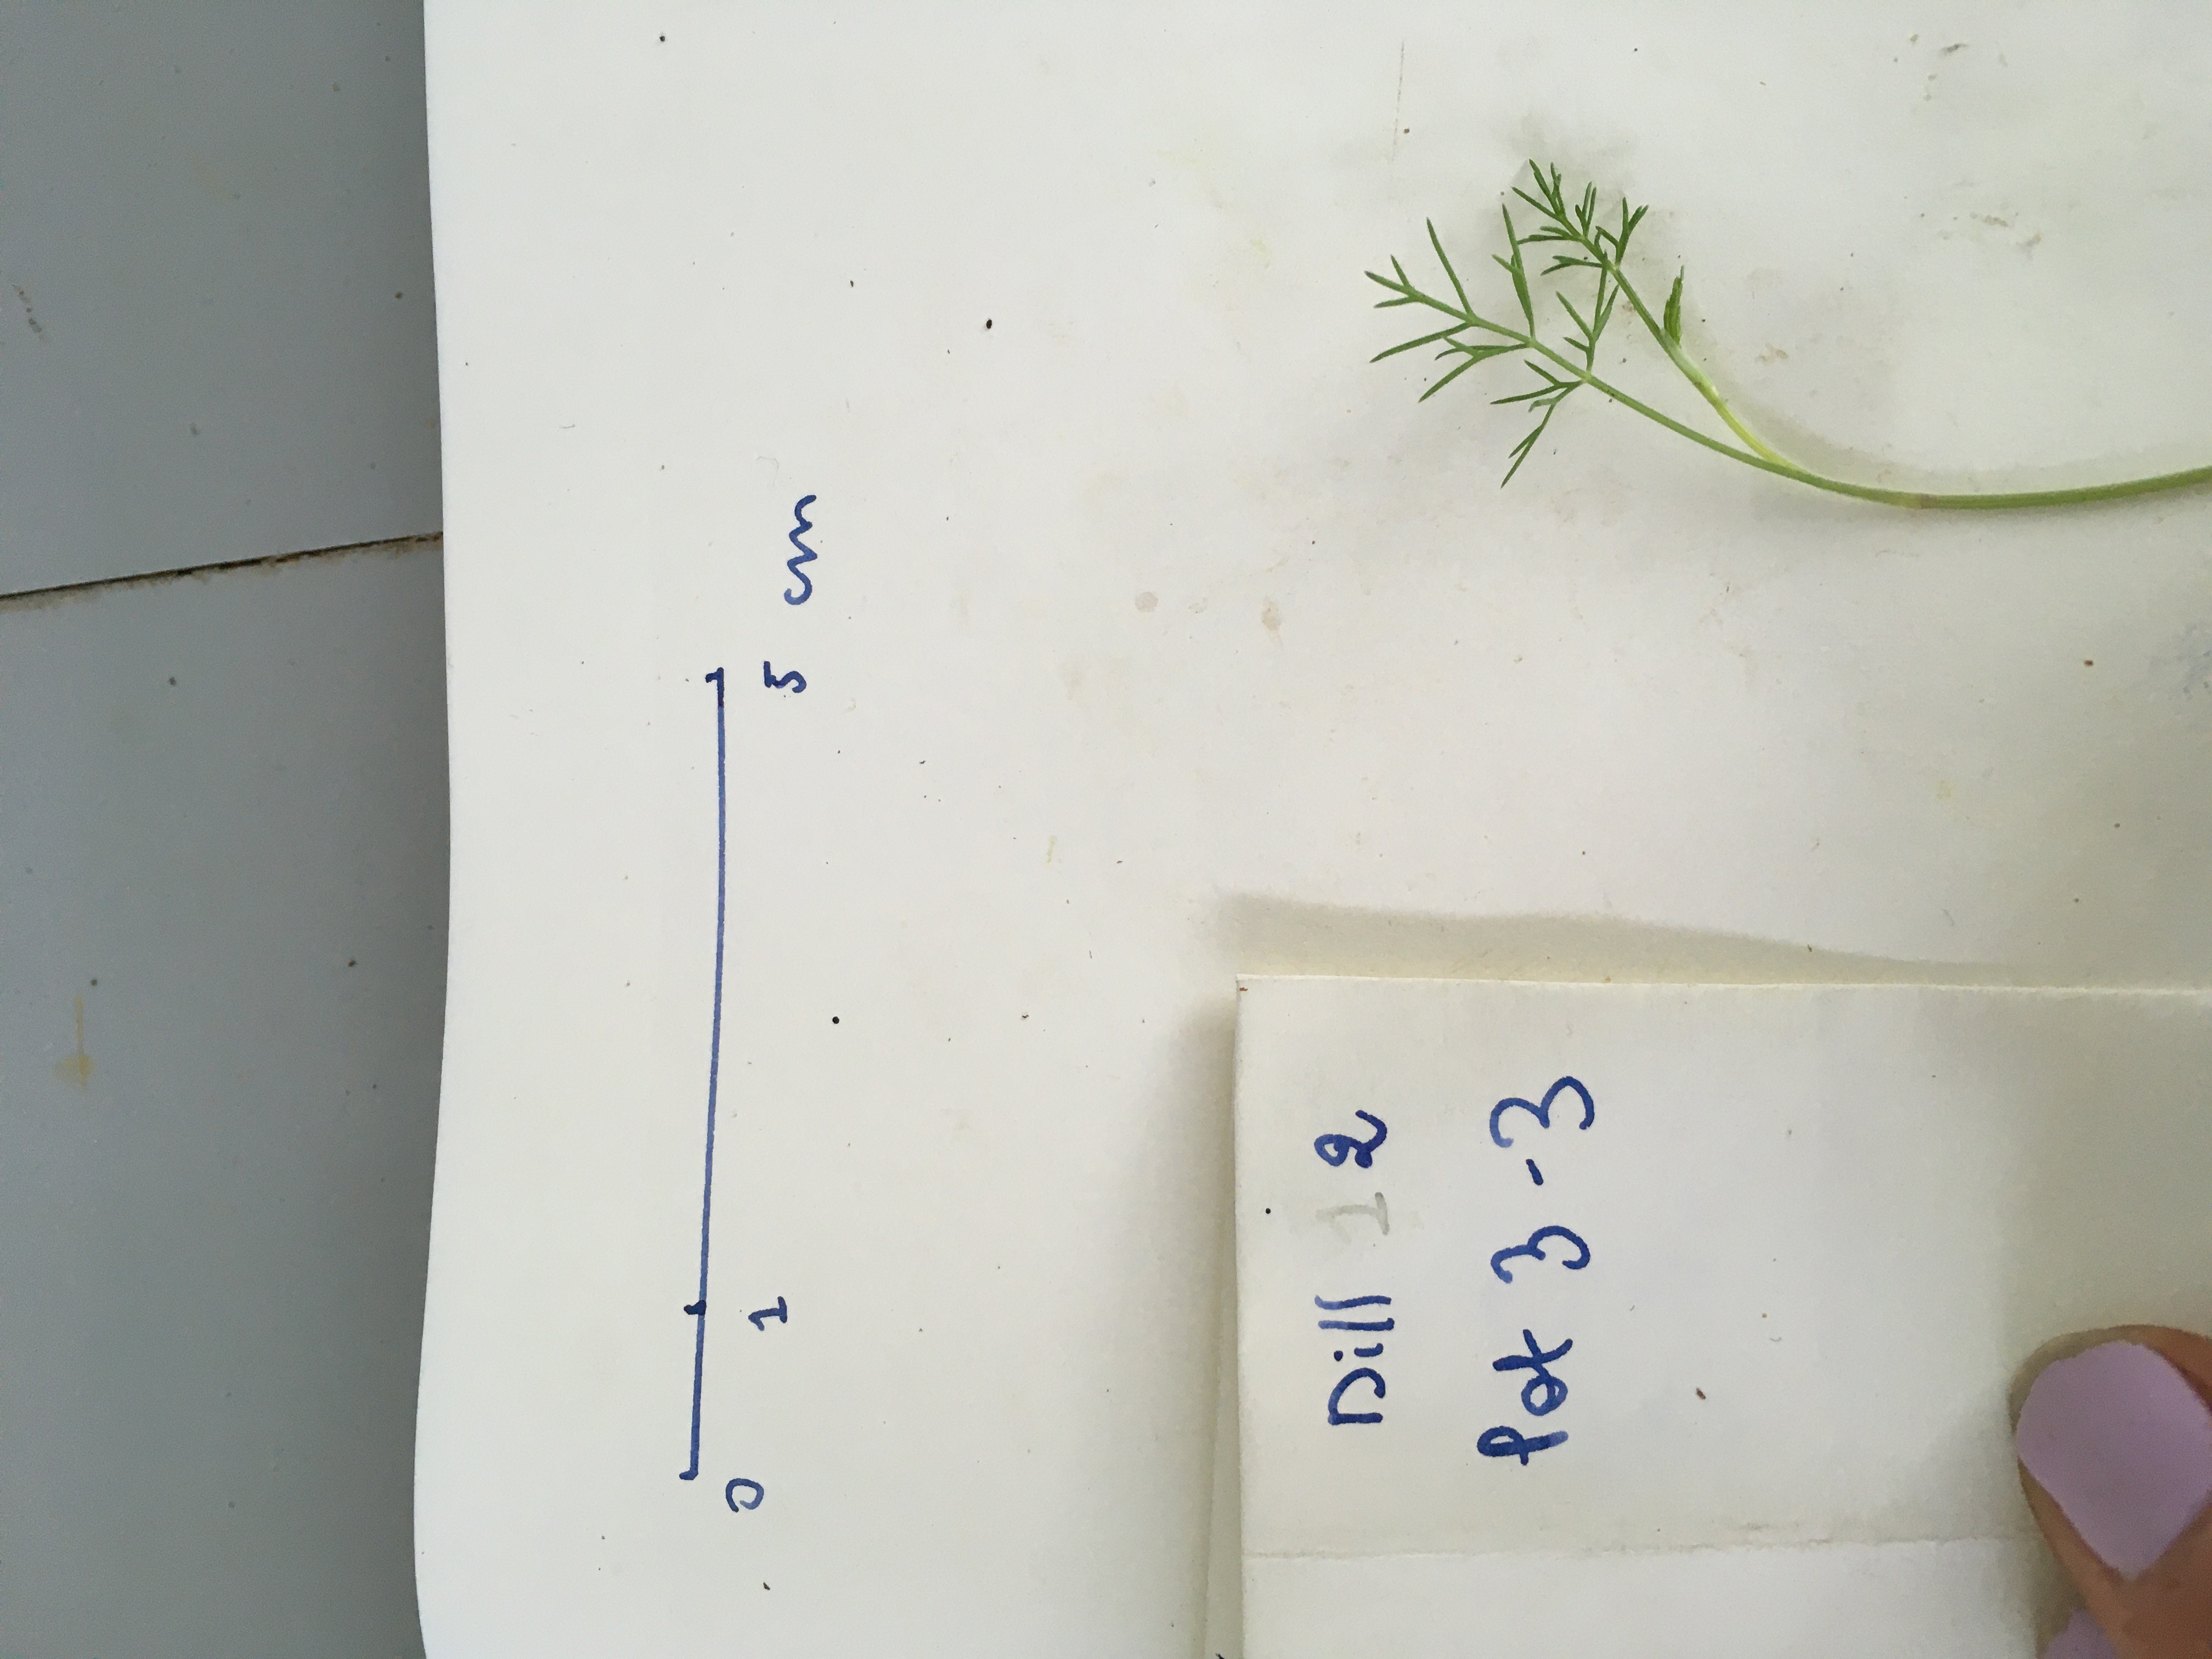 0 1 5 cm
Dill 1 2
Pot 3-3